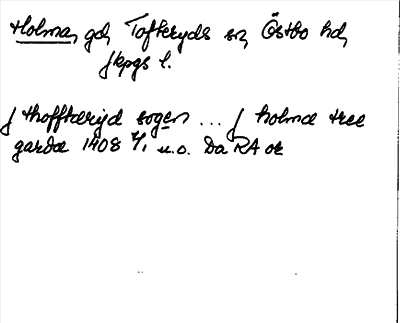 Holma, gd, Tofteryds sn, Östbo hd,
Jkpgs l.
J thofftæryd sogen ... J holma tree
garda 1408 7/1 u.o. Da RA or